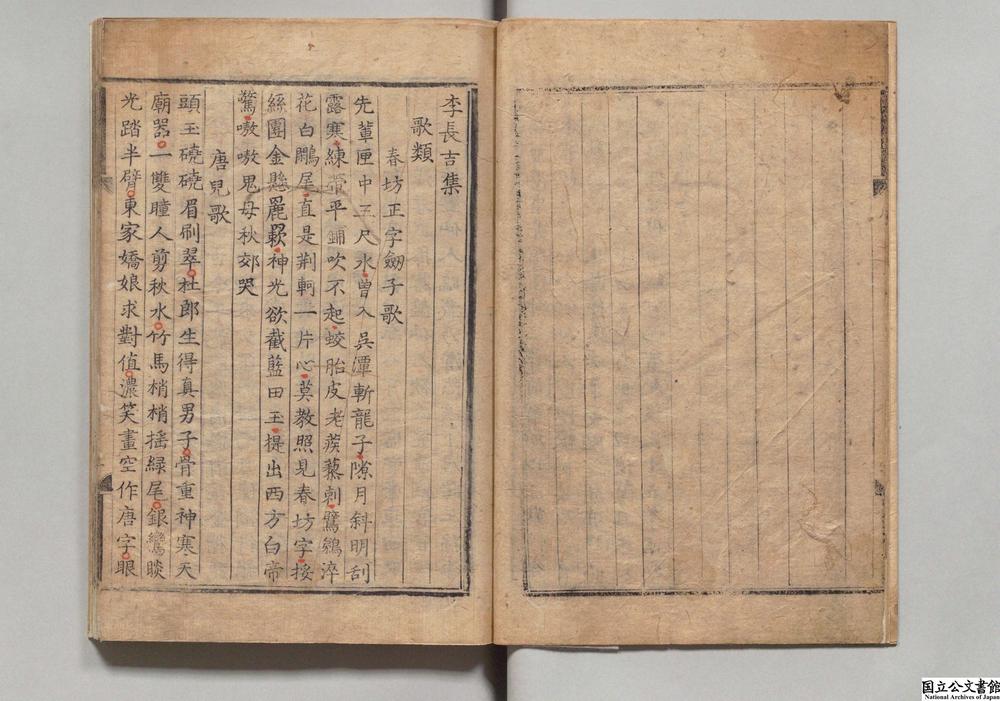 李長吉集
歌類
春坊正字劒子歌
先軰匣中三尺水曽入吳潭斬龍子隙月斜明刮
露寒練帶平鋪吹不起蛟胎皮老蒺藜刺鸊鵜淬
花白鷴尾直是荆軻一片心莫教照見春坊字挼
絲團金懸䍡䍥神光欲截藍田玉提出西方白帝
驚嗷嗷鬼母秋郊哭
唐兒歌
頭玉磽磽眉刷翠杜郎生得真男子骨重神寒天
廟器一雙瞳人剪秋水竹馬梢梢揺緑尾銀鸞睒
光踏半臂東家嬌娘求對值濃笑畫空作唐字眼
国立公文書館
National Archives of Japan